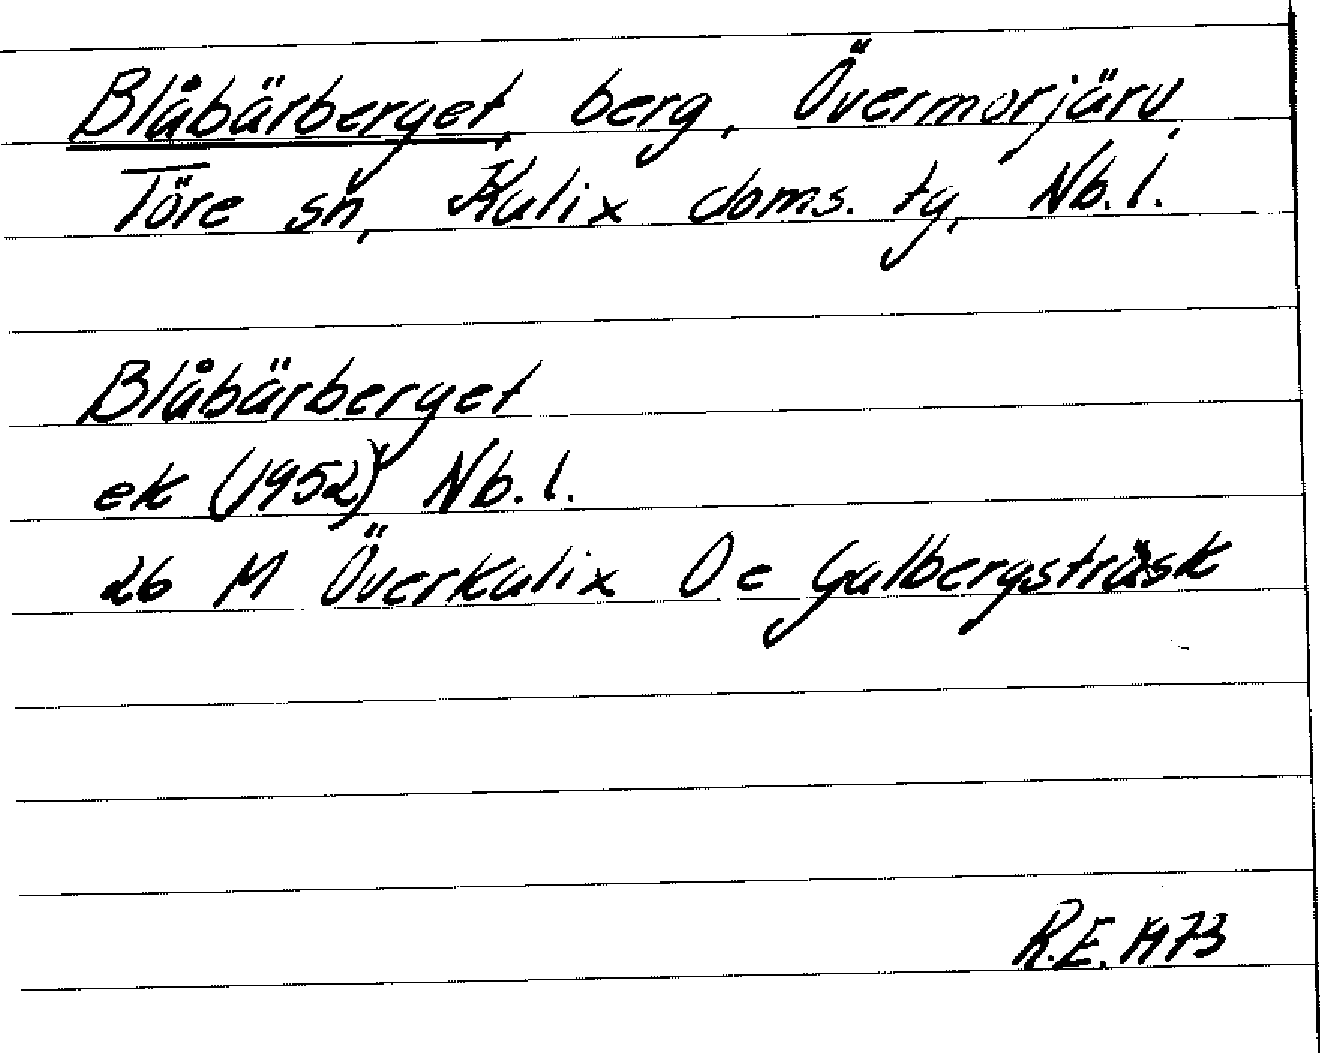 Blåbärberget, berg, Övermorjärv,
Töre sn, Kalix doms. tg, Nb. l.
Blåbärberget
ek (1952) Nb. l.
26 M Överkalix De Galbergsträsk
R.E. 1973